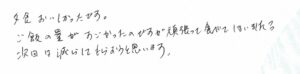 夕食 おいしかったです。
ご飯の量がすごかったのですが頑張って食べてしまいました
次回は減らしてもらおうと思います。